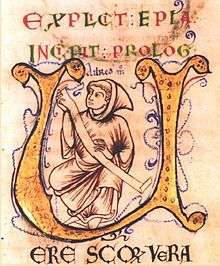 EXPLCT : EPLA
INCIPIT : PROLOG
U
ERE SCOꝜ VERA